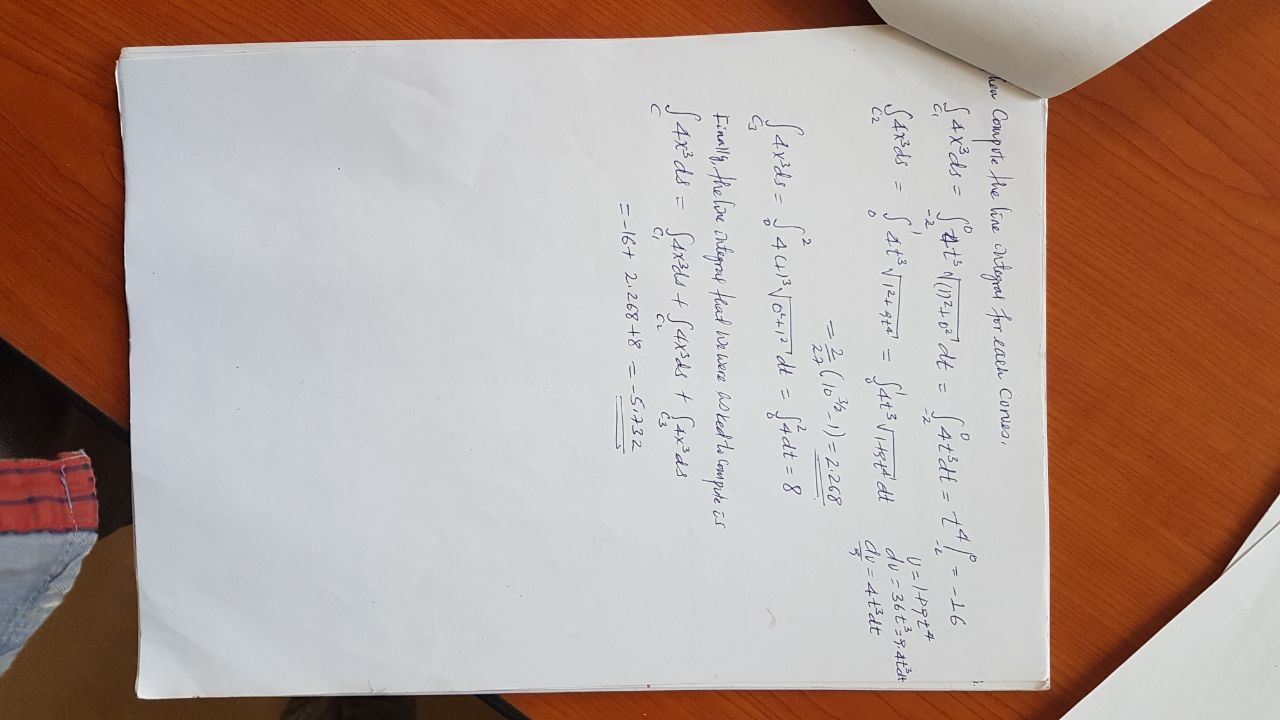 Then Compute the line integral for each Curves.
∫_C₁ 4x³ds = ∫_{-2}^0 4t³√((1)²+0²) dt = ∫_{-2}^0 4t³dt = t⁴|_{-2}^0 = -16
∫_C₂ 4x³ds = ∫_0^1 4t³√(1²+9t⁴) = ∫_0^1 4t³√(1+9t⁴) dt
u = 1+9t⁴
du = 36t³ = 9.4t³dt
du/9 = 4t³dt
= 2/27 (10^{3/2} - 1) = 2.268
∫_C₃ 4x³ds = ∫_0^2 4(1)³√(0²+1²) dt = ∫_0^2 4dt = 8
Finally, the line integral that we were asked to compute is
∫_C 4x³ds = ∫_C₁ 4x³ds + ∫_C₂ 4x³ds + ∫_C₃ 4x³ds
= -16 + 2.268 + 8 = -5.732